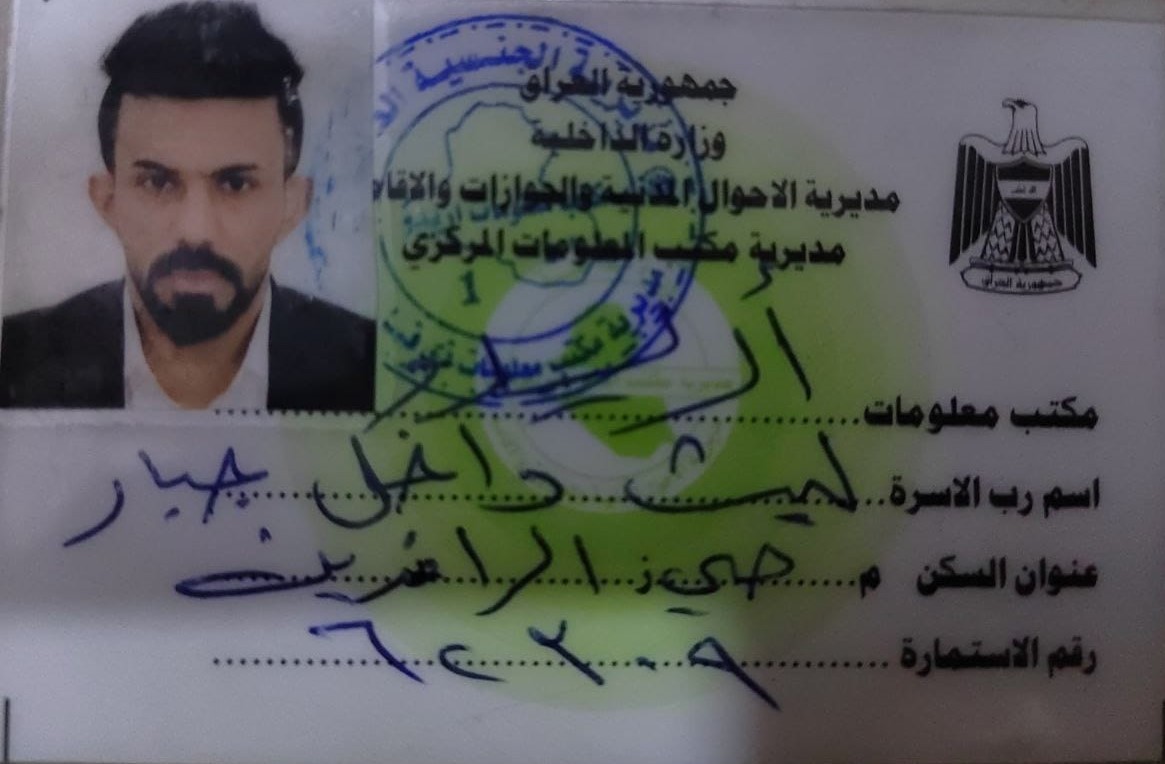 جمهورية العراق
وزارة الداخلية
مديرية الاحوال المدنية والجوازات والاقا
مديرية مكتب المعلومات المركزي
جمهورية العراق
1
مكتب معلومات
اسم رب الاسرة ليث داخل جبار
عنوان السكن م حي ز الرافدين
رقم الاستمارة